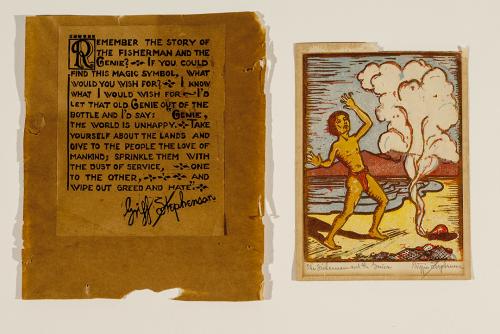 REMEMBER THE STORY OF
THE FISHERMAN AND THE
GENIE? IF YOU COULD
FIND THIS MAGIC SYMBOL, WHAT
WOULD YOU WISH FOR? I KNOW
WHAT I WOULD WISH FOR — I'D
LET THAT OLD GENIE OUT OF THE
BOTTLE AND I'D SAY: "GENIE,
THE WORLD IS UNHAPPY. TAKE
YOURSELF ABOUT THE LANDS AND
GIVE TO THE PEOPLE THE LOVE OF
MANKIND; SPRINKLE THEM WITH
THE DUST OF SERVICE, ONE
TO THE OTHER, AND
WIPE OUT GREED AND HATE".
Griff Stephenson
The Fisherman and the Genie